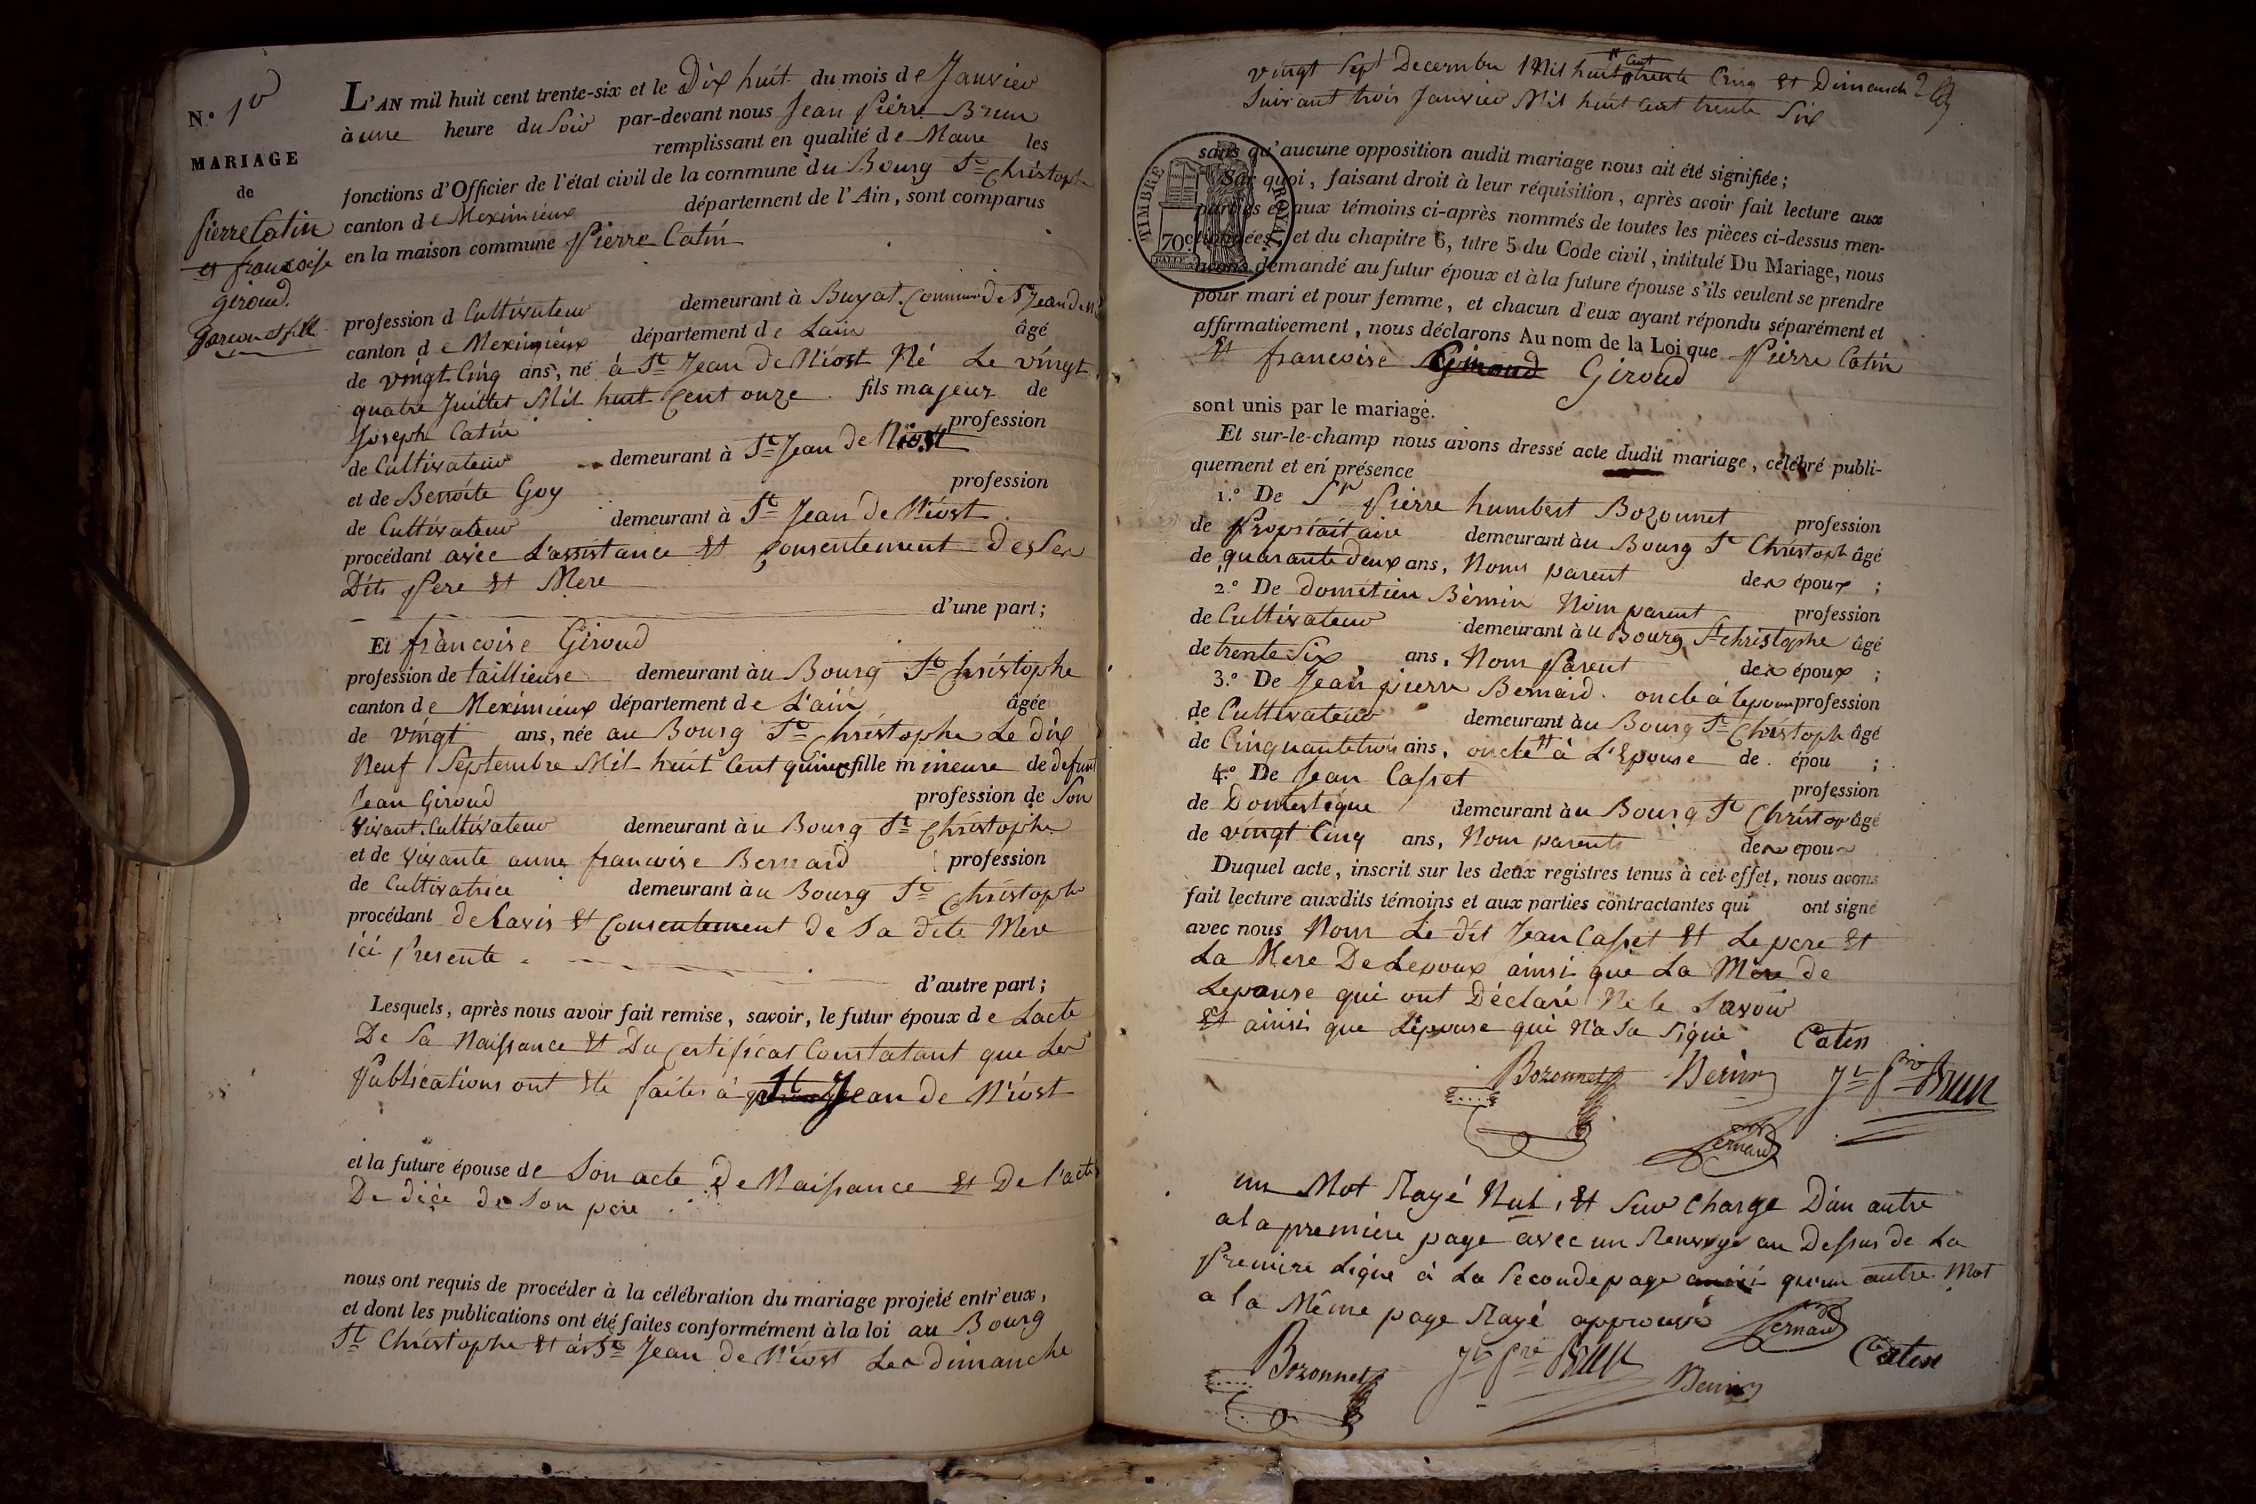 N.° 1er
MARIAGE
de
Pierre Catin
et françoise
giroud.
garcon et fille
L'AN mil huit cent trente-six et le Dix huit du mois de Janvier
à une heure du Soir par-devant nous Jean Pierre Brun
remplissant en qualité de Maire les
fonctions d'Officier de l'état civil de la commune du Bourg St Christophe
canton de Meximieux département de l'Ain, sont comparus
en la maison commune Pierre Catin
profession d Cultivateur demeurant à Buyat Commune De St Jean de
canton de Meximieux département de Lain âgé
de vingt Cinq ans, né à St Jean De Niost Né Le vingt
quatre Juillet Mil huit Cent onze fils majeur de
Joseph Catin profession
de Cultivateur demeurant à St Jean De Niost
et de Benoite Goy profession
de Cultivateur demeurant à St Jean De Niost
procédant avec L'assistance et Consentement De Ses
Dits Pere et Mere
d'une part;
Et françoise Giroud
profession de taillieuse demeurant au Bourg St Christophe
canton de Meximieux département de L'ain âgée
de vingt ans, née au Bourg St Christophe Le dix
Neuf Septembre Mil huit Cent quinze fille mineure de defunt
Jean Giroud profession de Son
vivant Cultivateur demeurant au Bourg St Christophe
et de vivante anne francoise Bernard profession
de Cultivatrice demeurant au Bourg St Christophe
procédant de Lavis et Consentement de Sa dite Mere
ici Presente
d'autre part;
Lesquels, après nous avoir fait remise, savoir, le futur époux de Lacte
De Sa Naissance et Du Certificat Constatant que Les
Publications ont été faites à St Jean de Niost
et la future épouse de Son acte de Naissance et De l'acte
De décé de Son pere
nous ont requis de procéder à la célébration du mariage projeté entr'eux,
et dont les publications ont été faites conformément à la loi au Bourg
St Christophe et à St Jean De Niost Les dimanche
vingt Sept Decembre Mil huit Cent trente Cinq et Dimanche
Suivant trois Janvier Mil huit Cent trente Six
sans qu'aucune opposition audit mariage nous ait été signifiée;
Sur quoi, faisant droit à leur réquisition, après avoir fait lecture aux
parties et aux témoins ci-après nommés de toutes les pièces ci-dessus men-
tionnées, et du chapitre 6, titre 5 du Code civil, intitulé Du Mariage, nous
avons demandé au futur époux et à la future épouse s'ils veulent se prendre
pour mari et pour femme, et chacun d'eux ayant répondu séparément et
affirmativement, nous déclarons Au nom de la Loi que Pierre Catin
et francoise Giroud
TIMBRE ROYAL
70c
sont unis par le mariage.
Et sur-le-champ nous avons dressé acte dudit mariage, célébré publi-
quement et en présence
1.° De Sr Pierre humbert Bozonnet profession
de Propriaitaire demeurant au Bourg St Christoph âgé
de quarante deux ans, Nom parent des époux ;
2.° De Domitien Bernin Nom parent profession
de Cultivateur demeurant au Bourg St christophe âgé
de trente Six ans, Nom Parent des époux ;
3.° De Jean pierre Bernard oncle à lepoux profession
de Cultivateur demeurant au Bourg St Christoph âgé
de Cinquante trois ans, oncle à L'Epouse de épou ;
4.° De Jean Casset profession
de Domestique demeurant au Bourg St Christop âgé
de vingt Cinq ans, Nom parents des epoux
Duquel acte, inscrit sur les deux registres tenus à cet effet, nous avons
fait lecture auxdits témoins et aux parties contractantes qui ont signé
avec nous Nom Le dit Jean Casset et Le pere et
La Mere De Lepoux ainsi que La Mere de
Lepouse qui ont Déclaré Ne le Savoir
et ainsi que Lepouse qui N'a Su Signé Catin
Bozonnet Bernin Jn Prre Brun
Bernard
un Mot Rayé Nul, et Sur Charge D'un autre
a la premiere page avec un Renvoye au Dessus de La
Premire Ligne à La Seconde page ainsi qu'un autre Mot
a la Même page Rayé approuvé Bernard
Bozonnet Jn Prre Brun Bernin Catin